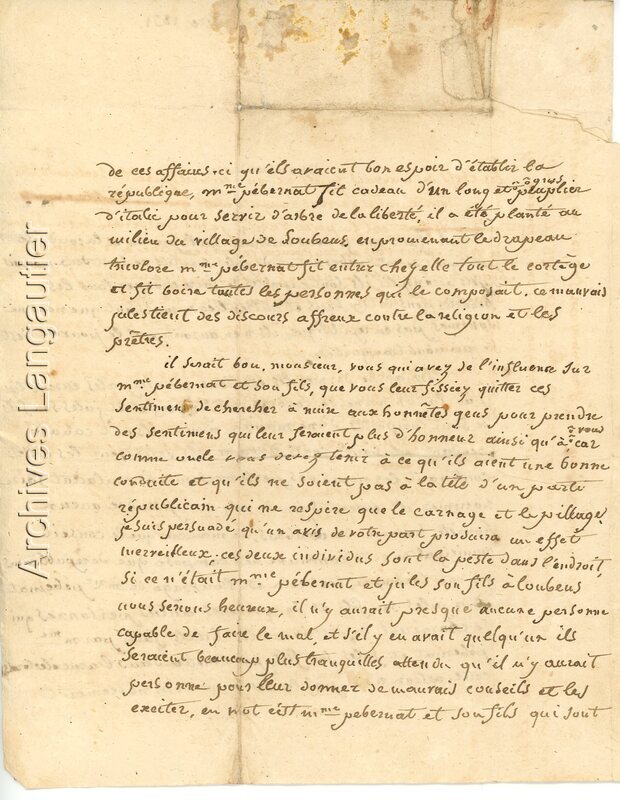 de ces affaires-ci qu'ils avaient bon espoir d'établir la
république, mme pébernat fit cadeau d'un long et gros peuplier
d'italie pour servir d'arbre de la liberté, il a été planté au
milieu du village de Loubens, en promenant le drapeau
tricolore mme pébernat fit entrer chez elle tout le cortège
et fit boire toutes les personnes qui le composait. ce mauvais
jules tient des discours affreux contre la religion et les
prêtres.
il serait bon, monsieur, vous qui avez de l'influence sur
mme pébernat et son fils, que vous leur fissiez quitter ces
sentimens de chercher à nuire aux honnêtes gens pour prendre
des sentimens qui leur seraient plus d'honneur ainsi qu'à vous car
comme oncle vous devez tenir à ce qu'ils aient une bonne
conduite et qu'ils ne soient pas à la tête d'un parti
républicain qui ne respire que le carnage et le pillage.
je suis persuadé qu'un avis de votre part produira un effet
merveilleux; ces deux individus sont la peste dans l'endroit,
si ce n'était mme pébernat et jules son fils à loubens
nous serions heureux, il n'y aurait presque aucune personne
capable de faire le mal, et s'il y en avait quelqu'un ils
seraient beaucoup plus tranquilles attendu qu'il n'y aurait
personne pour leur donner de mauvais conseils et les
exciter, en mot c'est mme pebernat et son fils qui sont
Archives Langautier